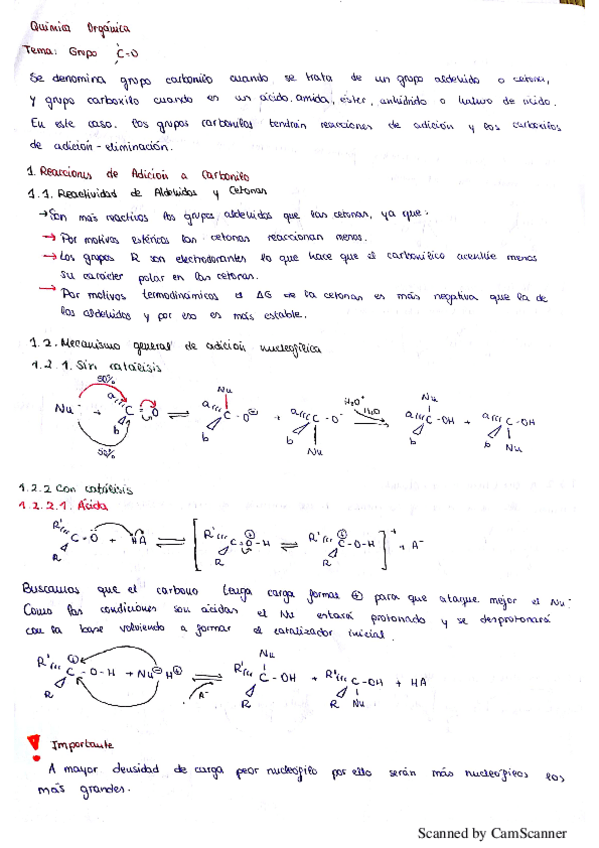 Química Orgánica
Tema: Grupo C=O
Se denomina grupo carbonilo cuando se trata de un grupo aldehido o cetona,
y grupo carboxilo cuando es un ácido, amida, éster, anhidrido o haluro de ácido.
En este caso. los grupos carbonilos tendrán reacciones de adición y los carboxilos
de adición-eliminación.
1. Reacciones de Adición a Carbonilo
1.1. Reactividad de Aldehidos y Cetonas
→ Son más reactivos los grupos aldehidos que las cetonas, ya que:
→ Por motivos estéricos las cetonas reaccionan menos.
→ Los grupos R son electrodorantes lo que hace que el carbonílico acentúe menos
su carácter polar en las cetonas.
→ Por motivos termodinámicos el ΔG de la cetonas es más negativa que la de
los aldehidos y por eso es más estable.
1.2. Mecanismo general de adición nucleofílica
1.2.1. Sin catálisis
50%
Nu⁻ + a b C=O ⇌ Nu a b C-O⊖ + a b C-O⁻ Nu H₃O⁺ H₂O Nu a b C-OH + a b C-OH Nu
50%
1.2.2 Con catálisis
1.2.2.1. Ácida
R' R C=O + HA ⇌ [R' R C=O⊕-H ⇌ R' R C⊕-O-H]⁺ + A⁻
Buscamos que el carbono tenga carga formal ⊕ para que ataque mejor el Nu⁻
Como las condiciones son ácidas el Nu estará protonado y se desprotonará
con la base volviendo a formar el catalizador inicial.
R' R C⊕-O-H + Nu⊖H⊕ A⁻ ⇌ R' Nu R C-OH + R' R C-OH Nu + HA
! Importante
A mayor densidad de carga peor nucleófilo por ello serán más nucleófilos los
más grandes.
Scanned by CamScanner